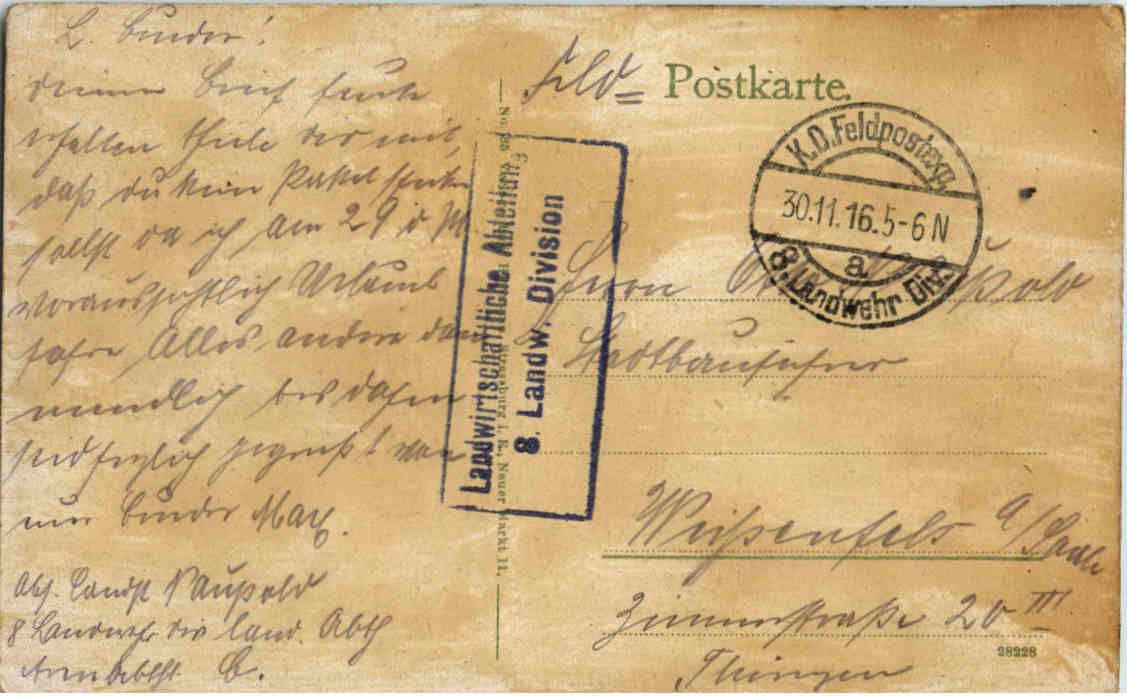 L. Bruder!
deinen Brief heute
erhalten theile dir mit,
daß du kein Paket schicken
sollst da ich am 29 d M
voraussichtlich Urlaub
fahre Alles andere dann
mündlich bis dahin
seid herzlich gegrüßt von
eur Bruder Max.
Abs. Landst Paupold
8 Landwehr div land. Abth
Feld= Postkarte.
K.D.Feldpostexp.
30.11.16.5-6N
a
8. Landwehr Div.
Landwirtschaftliche Abteilung
8. Landw. Division
Herrn
Stadtbauführer
Weißenfels a/Saale
Zimmerstraße 20 III
Thüringen
28228